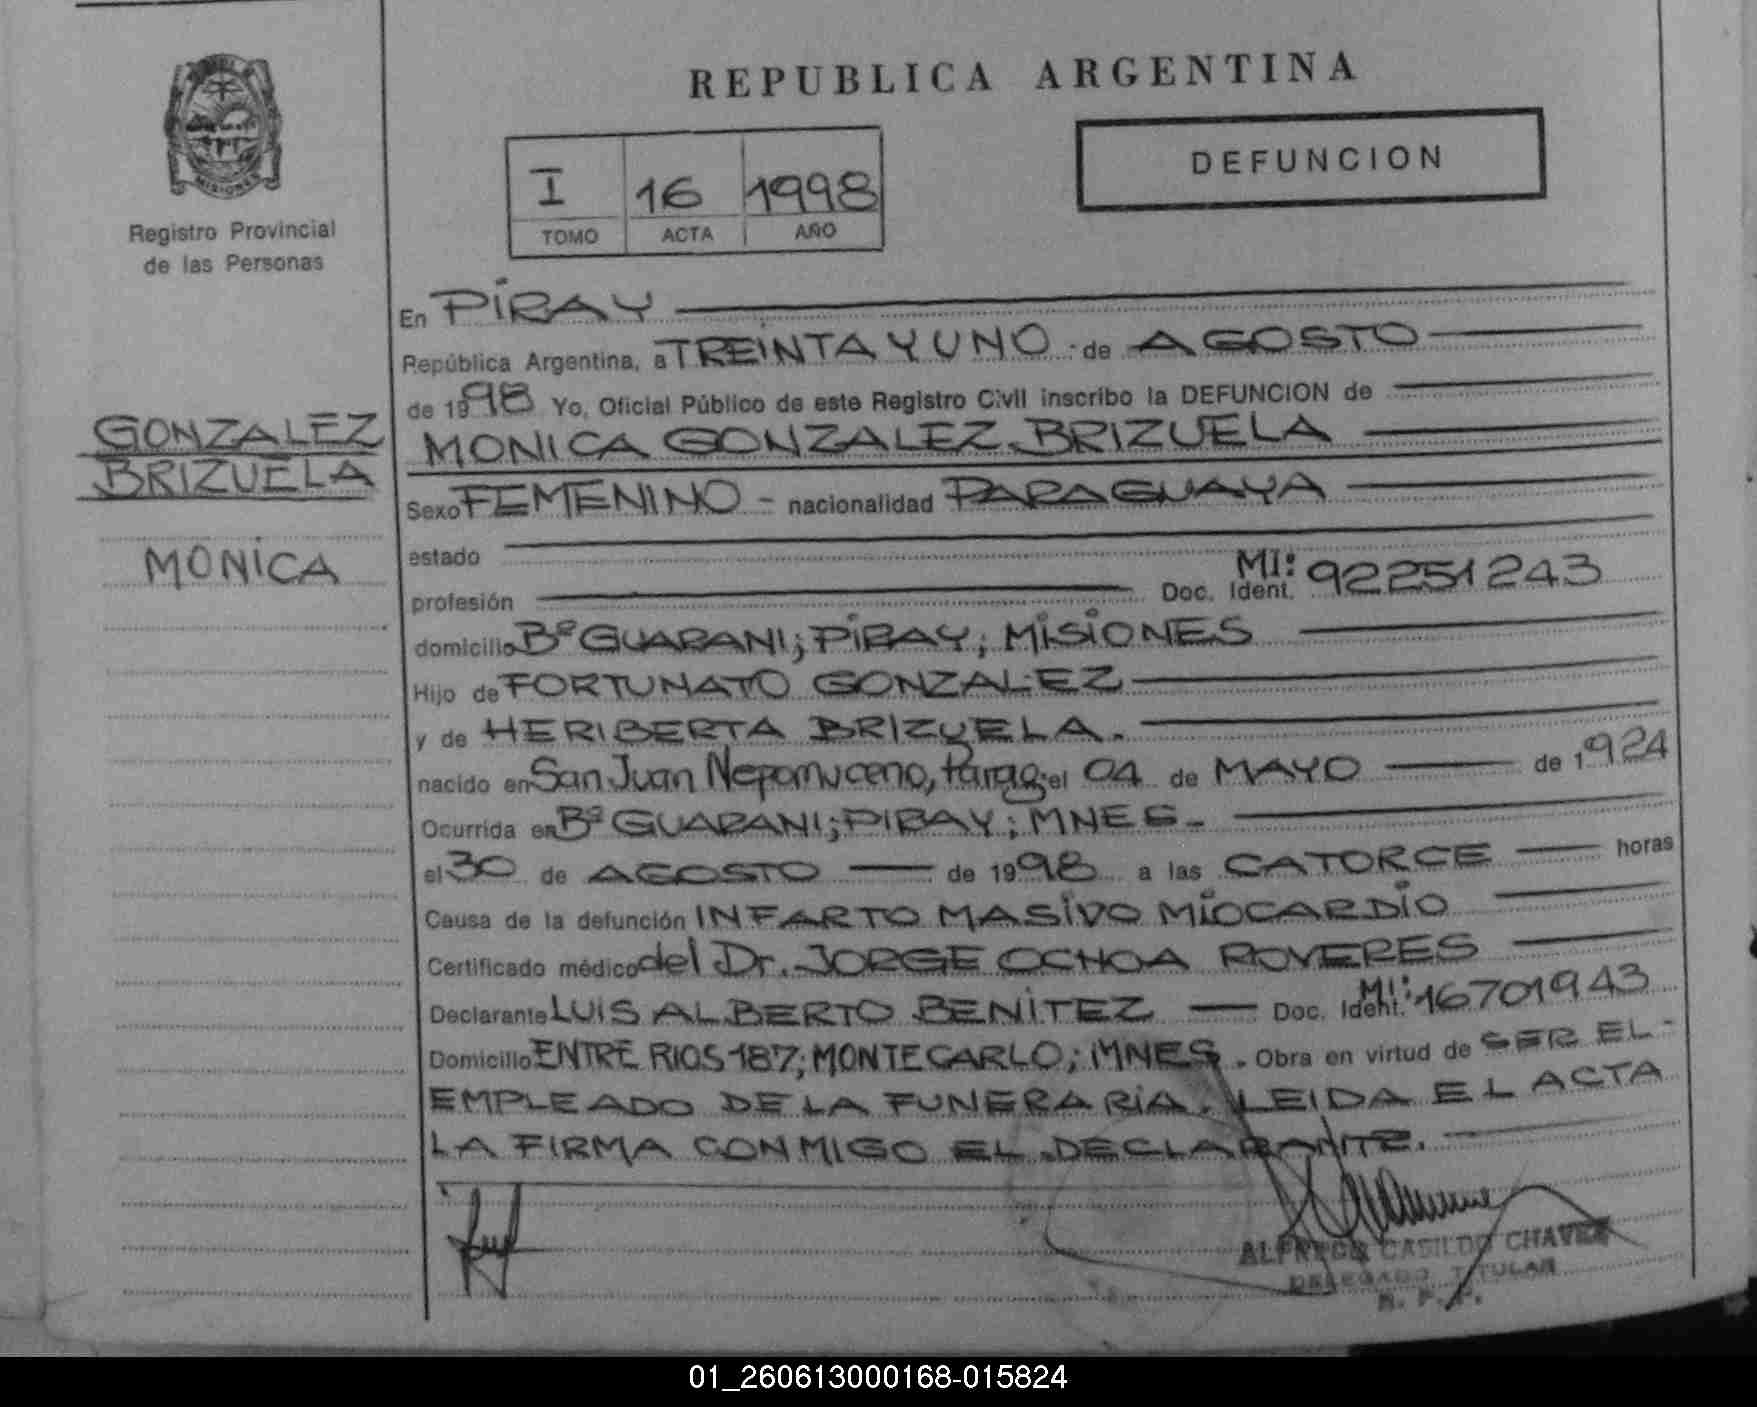 REPUBLICA ARGENTINA
DEFUNCION
I 16 1998
TOMO ACTA AÑO
MISIONES
Registro Provincial
de las Personas
GONZALEZ
BRIZUELA
MONICA
En PIRAY
República Argentina, a TREINTA Y UNO de AGOSTO
de 1998 Yo, Oficial Público de este Registro Civil inscribo la DEFUNCION de
MONICA GONZALEZ BRIZUELA
Sexo FEMENINO - nacionalidad PARAGUAYA
estado
profesión Doc. Ident. MI: 92251243
domicilio Bº GUARANI; PIRAY; MISIONES
Hijo de FORTUNATO GONZALEZ
y de HERIBERTA BRIZUELA.
nacido en San Juan Nepomuceno, Parag. el 04 de MAYO de 1924
Ocurrida en Bº GUARANI; PIRAY; MNES.
el 30 de AGOSTO de 1998 a las CATORCE horas
Causa de la defunción INFARTO MASIVO MIOCARDIO
Certificado médico del Dr. JORGE OCHOA ROVERES
Declarante LUIS ALBERTO BENITEZ Doc. Ident. MI: 16701943
Domicilio ENTRE RIOS 187; MONTECARLO; MNES. Obra en virtud de SER EL
EMPLEADO DE LA FUNERARIA. LEIDA EL ACTA
LA FIRMA CONMIGO EL DECLARANTE.
ALFREDO CASILDO CHAVEZ
DELEGADO TITULAR
R. P. P.
01_260613000168-015824